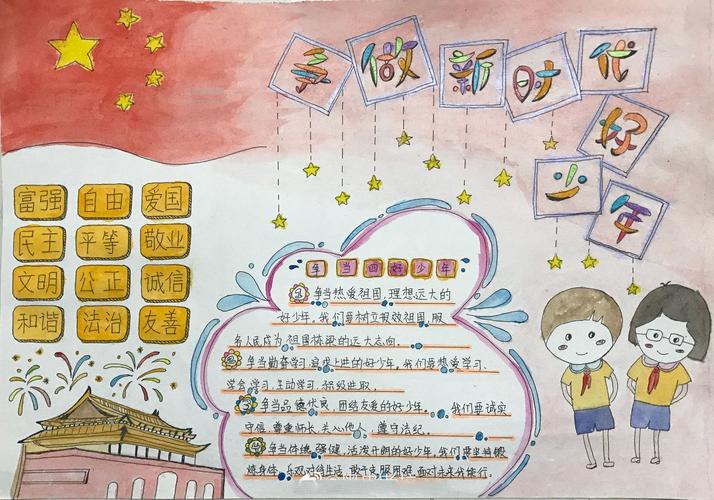 争做新时代
好
少年
富强 自由 爱国
民主 平等 敬业
文明 公正 诚信
和谐 法治 友善
争当四好少年
1 争当热爱祖国,理想远大的
好少年。我们要树立报效祖国,服
务人民,成为祖国栋梁的远大志向。
2 争当勤奋学习,追求上进的好少年。我们要热爱学习、
学会学习、主动学习、积极进取。
3 争当品德优良,团结友爱的好少年。我们要诚实
守信、尊重师长、关心他人,遵守法纪。
4 争当体魄强健,活泼开朗的好少年。我们要坚持锻
炼身体,乐观对待生活,敢于克服困难,面对未来